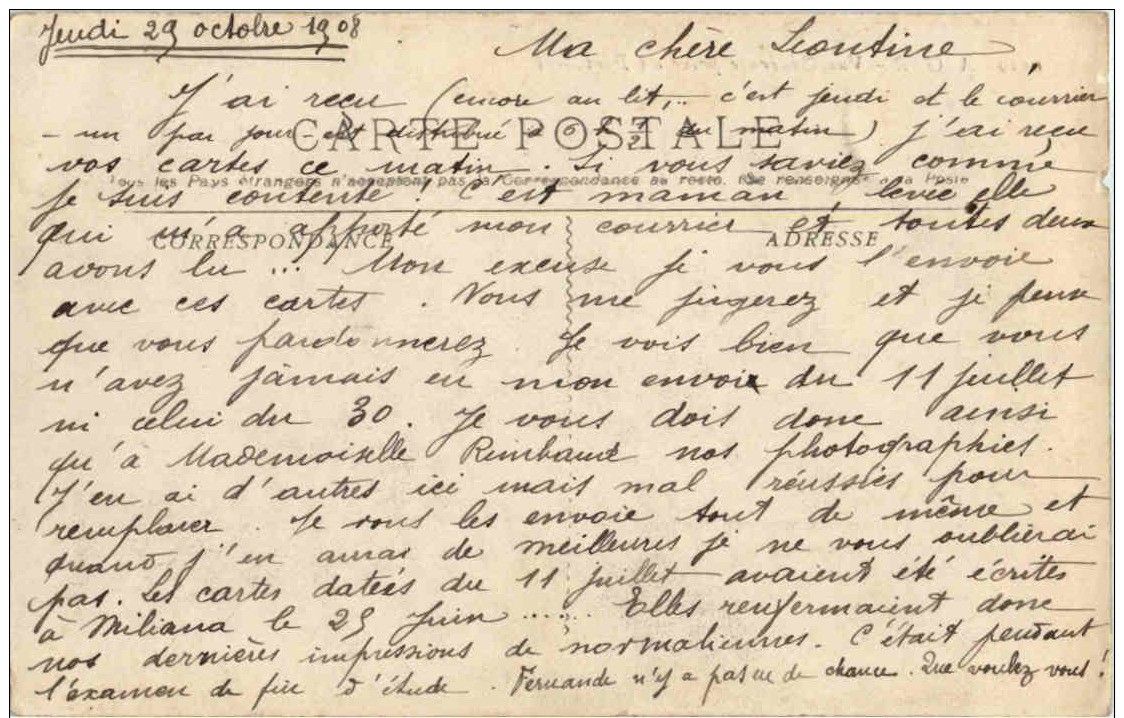 Jeudi 29 octobre 1908
Ma chère Leontine,
J'ai reçu (encore au lit,.. c'est jeudi et le courrier
- un par jour - est distribué à 6 h ½ du matin) j'ai reçu
CARTE POSTALE
vos cartes ce matin. Si vous saviez comme
Tous les Pays étrangers n'acceptent pas la Correspondance au recto. (Se renseigner à la Poste
je suis contente ! C'est maman, levée, elle
qui m'a apporté mon courrier et toutes deux
CORRESPONDANCE
ADRESSE
avons lu ... Mon excuse je vous l'envoie
avec ces cartes. Vous me jugerez et je peux
que vous pardonnerez. Je vois bien que vous
n'avez jamais eu mon envoi du 11 juillet
ni celui du 30. Je vous dois donc ainsi
qu'à Mademoiselle Rimbaud nos photographies.
J'en ai d'autres ici mais mal réussies pour
remplacer. Je vous les envoie tout de même et
quand j'en aurai de meilleures je ne vous oublierai
pas. Les cartes datées du 11 juillet avaient été écrites
à Miliana le 25 Juin ...... Elles renfermaient donc
nos dernières impressions de normaliennes. C'était pendant
l'examen de fin d'étude. Fernande n'y a pas eu de chance. Que voulez vous !